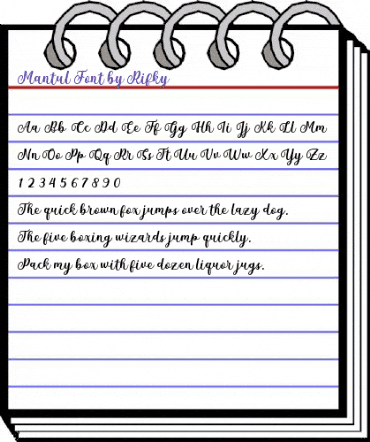 Mantul Font by Rifky
Aa Bb Cc Dd Ee Ff Gg Hh Ii Jj Kk Ll Mm
Nn Oo Pp Qq Rr Ss Tt Uu Vv Ww Xx Yy Zz
1 2 3 4 5 6 7 8 9 0
The quick brown fox jumps over the lazy dog.
The five boxing wizards jump quickly.
Pack my box with five dozen liquor jugs.